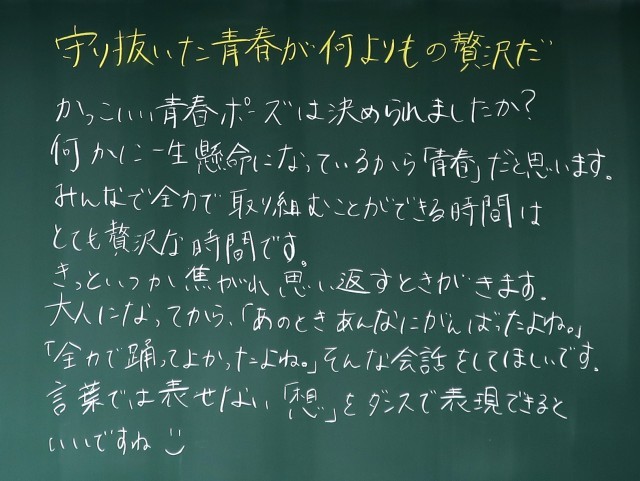 守り抜いた青春が何よりもの贅沢だ
かっこいい青春ポーズは決められましたか?
何かに一生懸命になっているから「青春」だと思います。
みんなで全力で取り組むことができる時間は
とても贅沢な時間です。
きっといつか焦がれ思い返すときがきます。
大人になってから、「あのときあんなにがんばったよね。」
「全力で踊ってよかったよね。」そんな会話をしてほしいです。
言葉では表せない「想」をダンスで表現できると
いいですね